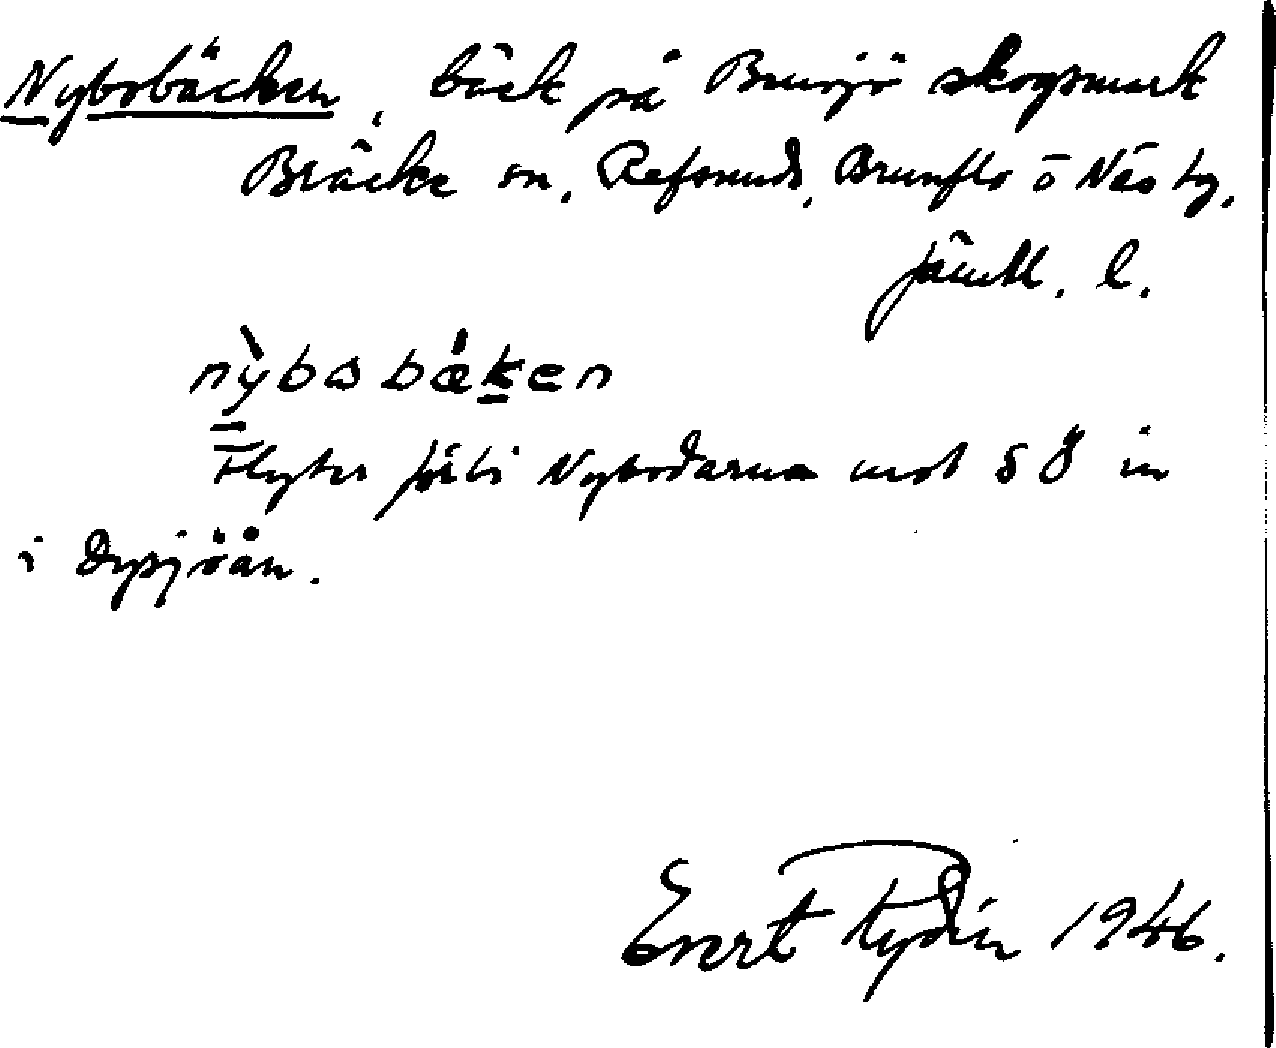 Nybobäcken, bäck på Bensjö skogsmark
Bräcke sn, Refsunds, Brunflo o Näs tg,
Jämtl. l.
nỳbobæken
Flyter förbi Nybodarna mot SÖ in
i Dysjöån.
Evert Rydin 1946.